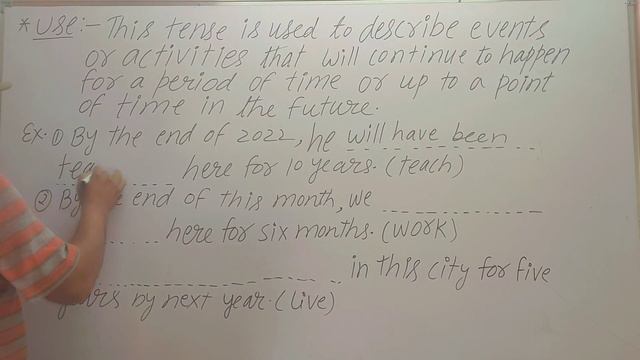 * Use:- This tense is used to describe events
or activities that will continue to happen
for a period of time or up to a point
of time in the future.
Ex. ① By the end of 2022, he will have been
tea here for 10 years. (teach)
② By end of this month, we
here for six months. (work)
in this city for five
years by next year. (live)